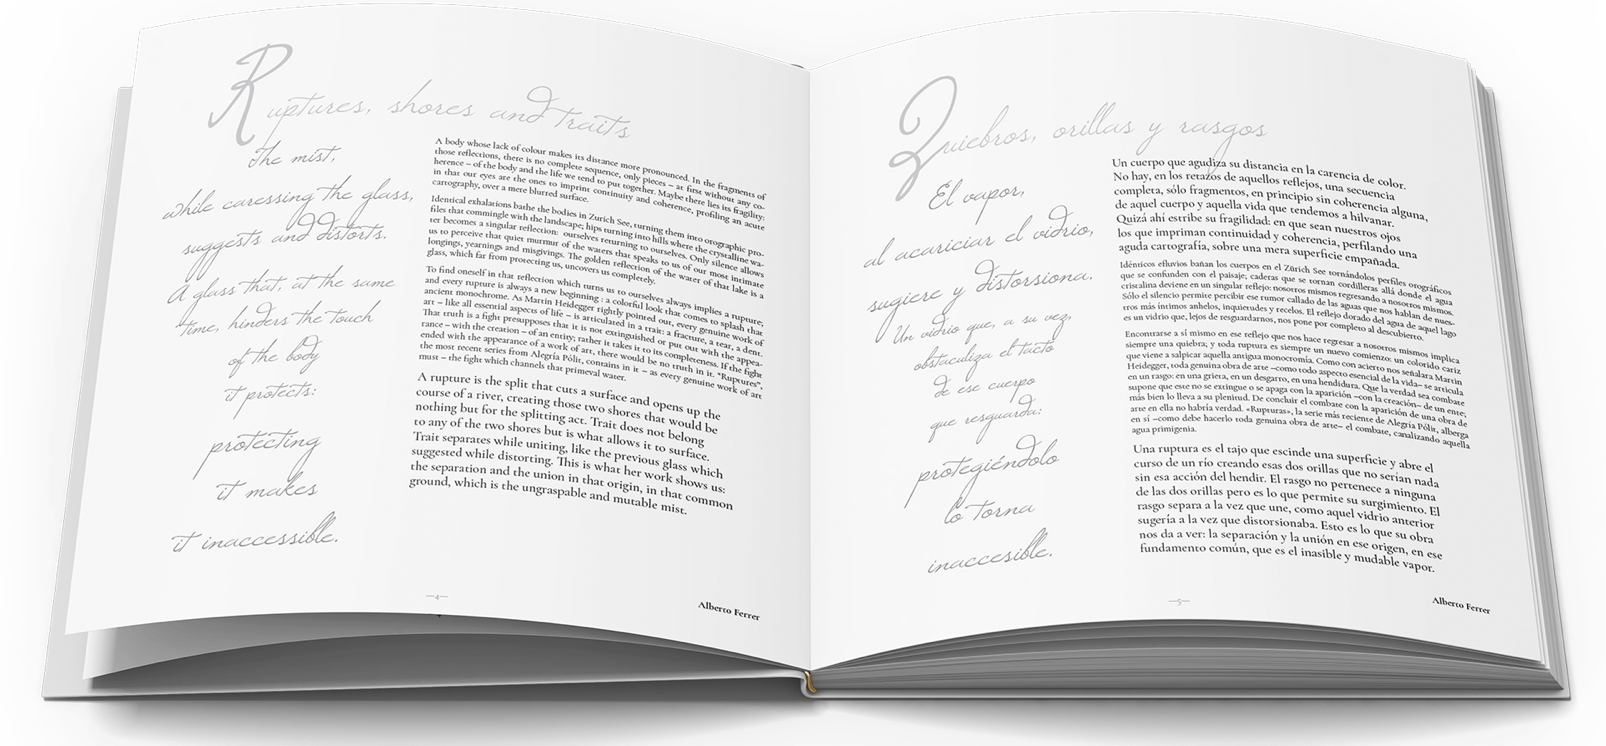 Ruptures, shores and traits
The mist,
while caressing the glass,
suggests and distorts.
A glass that, at the same
time, hinders the touch
of the body
it protects:
protecting
it makes
it inaccessible.
A body whose lack of colour makes its distance more pronounced. In the fragments of
those reflections, there is no complete sequence, only pieces – at first without any co-
herence – of the body and the life we tend to put together. Maybe there lies its fragility:
in that our eyes are the ones to imprint continuity and coherence, profiling an acute
cartography, over a mere blurred surface.
Identical exhalations bathe the bodies in Zurich See, turning them into orographic pro-
files that commingle with the landscape; hips turning into hills where the crystalline wa-
ter becomes a singular reflection: ourselves returning to ourselves. Only silence allows
us to perceive that quiet murmur of the waters that speaks to us of our most intimate
longings, yearnings and misgivings. The golden reflection of the water of that lake is a
glass, which far from protecting us, uncovers us completely.
To find oneself in that reflection which turns us to ourselves always implies a rupture;
and every rupture is always a new beginning : a colorful look that comes to splash that
ancient monochrome. As Martin Heidegger rightly pointed out, every genuine work of
art – like all essential aspects of life – is articulated in a trait: a fracture, a tear, a dent.
That truth is a fight presupposes that it is not extinguished or put out with the appea-
rance – with the creation – of an entity; rather it takes it to its completeness. If the fight
ended with the appearance of a work of art, there would be no truth in it. “Ruptures”,
the most recent series from Alegría Pólit, contains in it – as every genuine work of art
must – the fight which channels that primeval water.
A rupture is the split that cuts a surface and opens up the
course of a river, creating those two shores that would be
nothing but for the splitting act. Trait does not belong
to any of the two shores but is what allows it to surface.
Trait separates while uniting, like the previous glass which
suggested while distorting. This is what her work shows us:
the separation and the union in that origin, in that common
ground, which is the ungraspable and mutable mist.
—4—
Alberto Ferrer
Quiebros, orillas y rasgos
El vapor,
al acariciar el vidrio,
sugiere y distorsiona.
Un vidrio que, a su vez,
obstaculiza el tacto
de ese cuerpo
que resguarda:
protegiéndolo
lo torna
inaccesible.
Un cuerpo que agudiza su distancia en la carencia de color.
No hay, en los retazos de aquellos reflejos, una secuencia
completa, sólo fragmentos, en principio sin coherencia alguna,
de aquel cuerpo y aquella vida que tendemos a hilvanar.
Quizá ahí estribe su fragilidad: en que sean nuestros ojos
los que impriman continuidad y coherencia, perfilando una
aguda cartografía, sobre una mera superficie empañada.
Idénticos efluvios bañan los cuerpos en el Zürich See tornándolos perfiles orográficos
que se confunden con el paisaje; caderas que se tornan cordilleras allá donde el agua
cristalina deviene en un singular reflejo: nosotros mismos regresando a nosotros mismos.
Sólo el silencio permite percibir ese rumor callado de las aguas que nos hablan de nues-
tros más íntimos anhelos, inquietudes y recelos. El reflejo dorado del agua de aquel lago
es un vidrio que, lejos de resguardarnos, nos pone por completo al descubierto.
Encontrarse a sí mismo en ese reflejo que nos hace regresar a nosotros mismos implica
siempre una quiebra; y toda ruptura es siempre un nuevo comienzo: un colorido cariz
que viene a salpicar aquella antigua monocromía. Como con acierto nos señalara Martin
Heidegger, toda genuina obra de arte –como todo aspecto esencial de la vida– se articula
en un rasgo: en una grieta, en un desgarro, en una hendidura. Que la verdad sea combate
supone que este no se extingue o se apaga con la aparición –con la creación– de un ente;
más bien lo lleva a su plenitud. De concluir el combate con la aparición de una obra de
arte en ella no habría verdad. «Rupturas», la serie más reciente de Alegría Pólit, alberga
en sí –como debe hacerlo toda genuina obra de arte– el combate, canalizando aquella
agua primigenia.
Una ruptura es el tajo que escinde una superficie y abre el
curso de un río creando esas dos orillas que no serían nada
sin esa acción del hendir. El rasgo no pertenece a ninguna
de las dos orillas pero es lo que permite su surgimiento. El
rasgo separa a la vez que une, como aquel vidrio anterior
sugería a la vez que distorsionaba. Esto es lo que su obra
nos da a ver: la separación y la unión en ese origen, en ese
fundamento común, que es el inasible y mudable vapor.
—5—
Alberto Ferrer